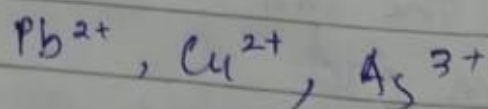 Pb²⁺, Cu²⁺, As³⁺